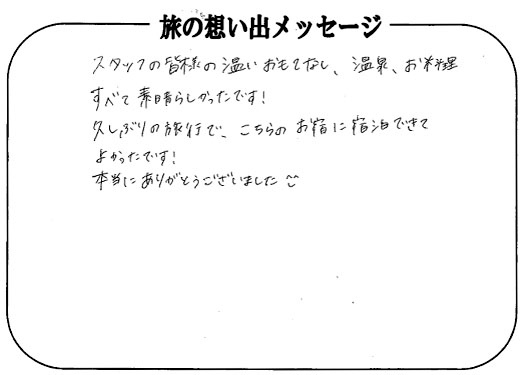 旅の想い出メッセージ
スタッフの皆様の温いおもてなし、温泉、お料理
すべて素晴らしかったです!
久しぶりの旅行で、こちらのお宿に宿泊できて
よかったです!
本当にありがとうございました